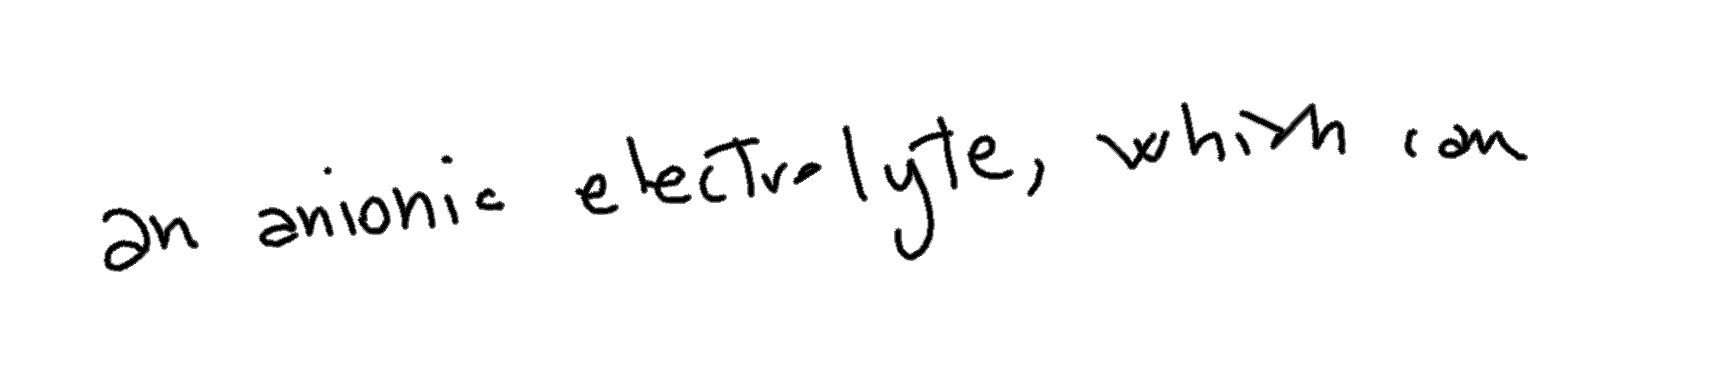 an anionic electrolyte, which can